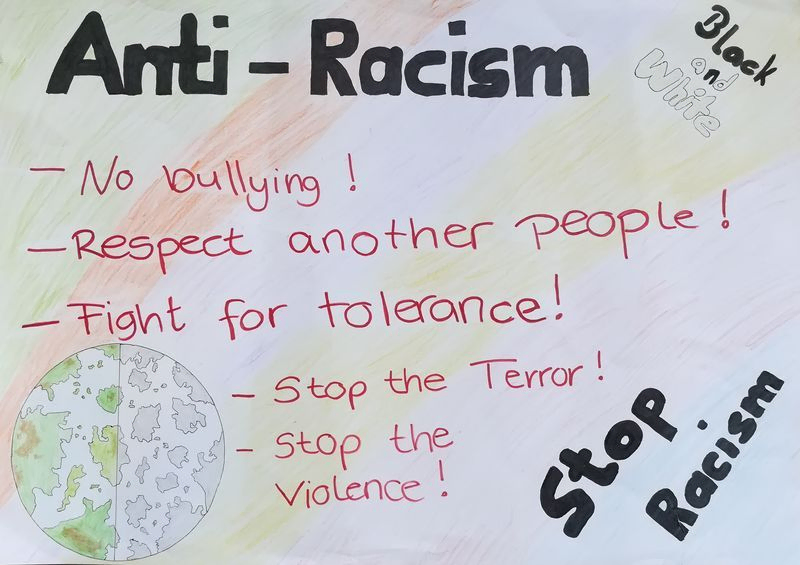 Anti-Racism
Black
and
White
- No bullying!
- Respect another people!
- Fight for tolerance!
- Stop the Terror!
- Stop the
Violence!
Stop
Racism